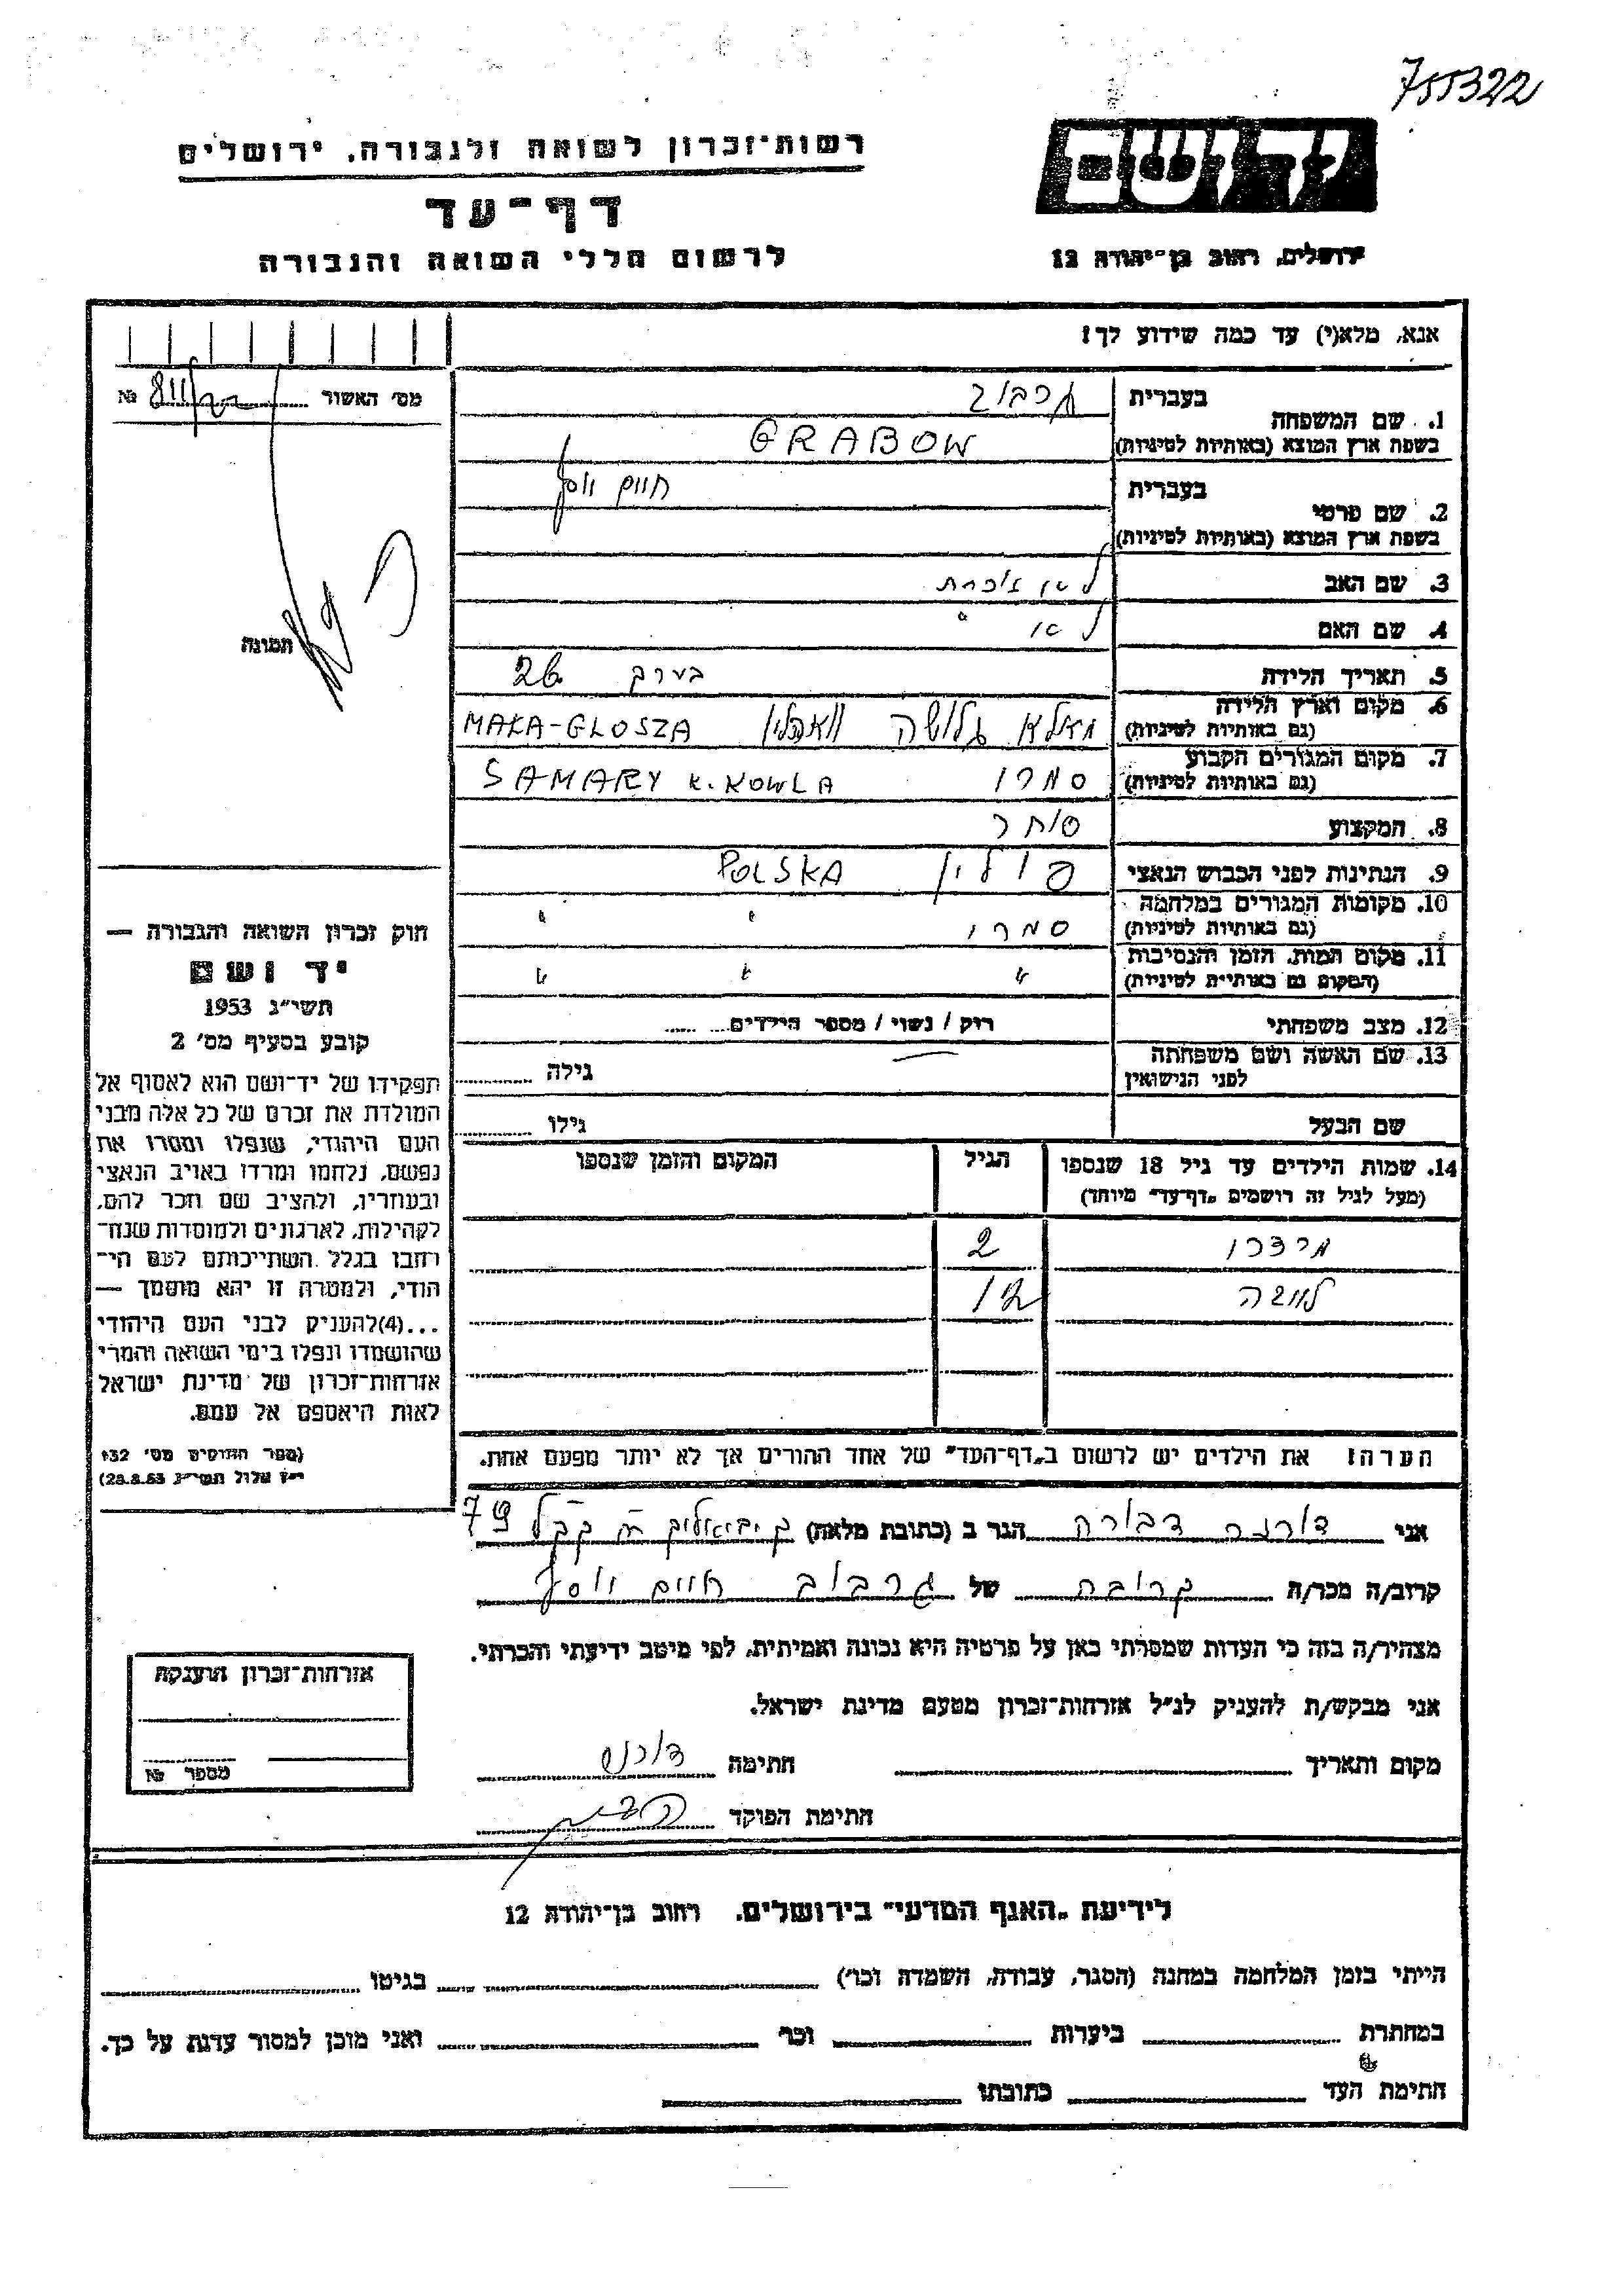 755322
יד ושם
ירושלים, רחוב בן־יהודה 12
רשות־זכרון לשואה ולגבורה, ירושלים
דף־עד
לרשום חללי השואה והגבורה
אנא, מלא(י) עד כמה שידוע לך!
מס' האשור № 811/
תמונה
1. שם המשפחה בעברית גרבוב
בשפת ארץ המוצא (באותיות לטיניות) GRABOW
2. שם פרטי בעברית חיים יוסף
בשפת ארץ המוצא (באותיות לטיניות)
3. שם האב לא זוכרת
4. שם האם לא "
5. תאריך הלידה בערך 26
6. מקום וארץ הלידה (גם באותיות לטיניות) מאלא גלושה וואהלין MAKA-GLOSZA
7. מקום המגורים הקבוע (גם באותיות לטיניות) סמרי SAMARY K. KOWLA
8. המקצוע סוחר
9. הנתינות לפני הכבוש הנאצי פולין POLSKA
10. מקומות המגורים במלחמה (גם באותיות לטיניות) סמרי " "
11. מקום המות, הזמן והנסיבות (המקום גם באותיות לטיניות) " " "
12. מצב משפחתי רווק / נשוי / מספר הילדים
13. שם האשה ושם משפחתה לפני הנישואין — גילה
שם הבעל גילו
14. שמות הילדים עד גיל 18 שנספו (מעל לגיל זה רושמים „דף־עד" מיוחד) הגיל המקום והזמן שנספו
2
הערה! את הילדים יש לרשום ב„דף־העד" של אחד ההורים אך לא יותר מפעם אחת.
חוק זכרון השואה והגבורה —
יד ושם
תשי"ג 1953
קובע בסעיף מס' 2
תפקידו של יד־ושם הוא לאסוף אל
המולדת את זכרם של כל אלה מבני
העם היהודי, שנפלו ומסרו את
נפשם, נלחמו ומרדו באויב הנאצי
ובעוזריו, ולהציב שם וזכר להם,
לקהילות, לארגונים ולמוסדות שנח־
רבו בגלל השתייכותם לעם הי־
הודי, ולמטרה זו יהא מוסמך —
...(4)להעניק לבני העם היהודי
שהושמדו ונפלו בימי השואה והמרי
אזרחות־זכרון של מדינת ישראל
לאות היאספם אל עמם.
(ספר החוקים מס' 132
י"ז אלול תשי"ג 28.8.53)
אני דורנה דבורה הגר ב (כתובת מלאה) ק. ביאליק קק"ל 79
קרוב/ה מכר/ה קרובה של גרבוב חיים יוסף
מצהיר/ה בזה כי העדות שמסרתי כאן על פרטיה היא נכונה ואמיתית, לפי מיטב ידיעתי והכרתי.
אני מבקש/ת להעניק לנ"ל אזרחות־זכרון מטעם מדינת ישראל.
מקום ותאריך חתימה
חתימת הפוקד
אזרחות־זכרון הוענקה
מספר №
לידיעת „האגף המדעי" בירושלים. רחוב בן־יהודה 12
הייתי בזמן המלחמה במחנה (הסגר, עבודה, השמדה וכו') בגיטו
במחתרת ביערות וכו' ואני מוכן למסור עדות על כך.
חתימת העד כתובתו